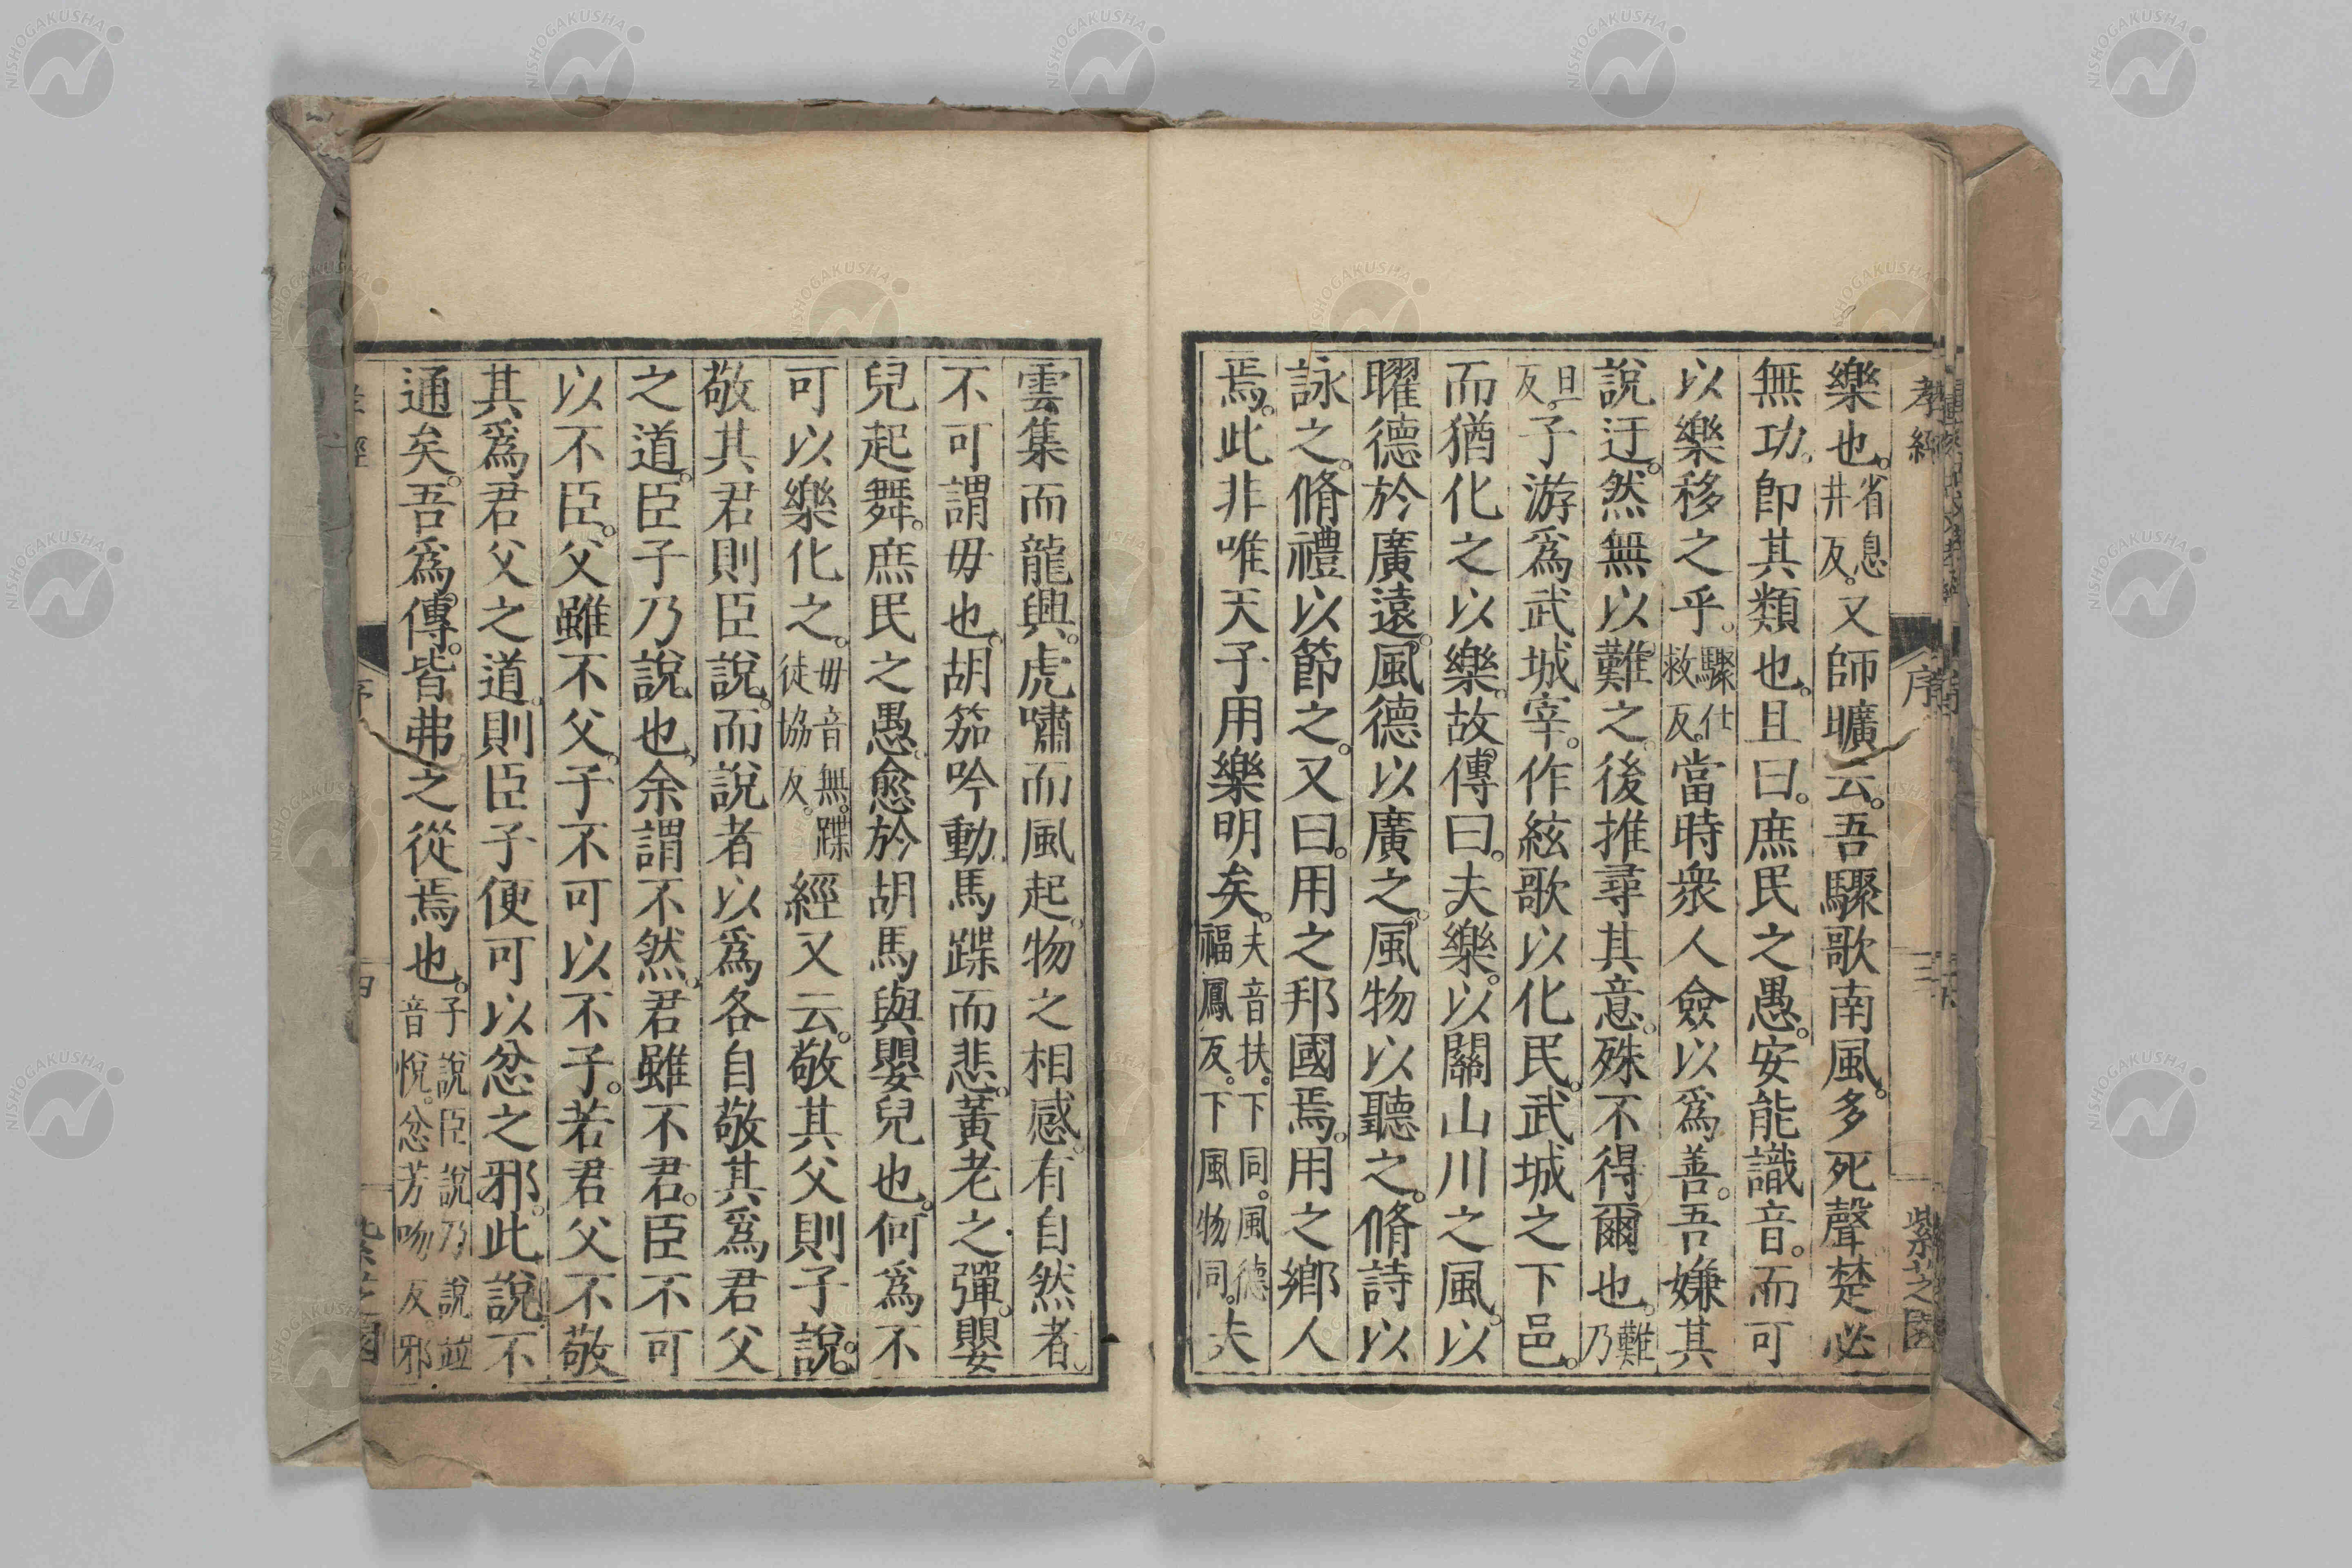 孝經 序 三 紫芝園
樂也。省息井反。又師曠云。吾驟歌南風。多死聲。楚必
無功。卽其類也。且曰。庶民之愚。安能識音。而可
以樂移之乎。驟仕救反。當時衆人僉以爲善。吾嫌其
說迂。然無以難之。後推尋其意。殊不得爾也。難乃
旦反。子游爲武城宰。作絃歌以化民。武城之下邑。
而猶化之以樂。故傳曰。夫樂。以關山川之風。以
曜德於廣遠。風德以廣之。風物以聽之。脩詩以
詠之。脩禮以節之。又曰。用之邦國焉。用之鄉人
焉。此非唯天子用樂明矣。夫音扶。下同。風德福鳳反。下風物同。夫
雲集而龍興。虎嘯而風起。物之相感。有自然者。
不可謂毋也。胡笳吟動。馬蹀而悲。黃老之彈。嬰
兒起舞。庶民之愚。愈於胡馬與嬰兒也。何爲不
可以樂化之。毋音無。蹀徒協反。經又云。敬其父則子說。
敬其君則臣說。而說者以爲各自敬其爲君父
之道。臣子乃說也。余謂不然。君雖不君。臣不可
以不臣。父雖不父。子不可以不子。若君父不敬
其爲君父之道。則臣子便可以忿之邪。此說不
通矣。吾爲傳。皆弗之從焉也。子說臣說乃說並音悅。忿芳吻反。邪